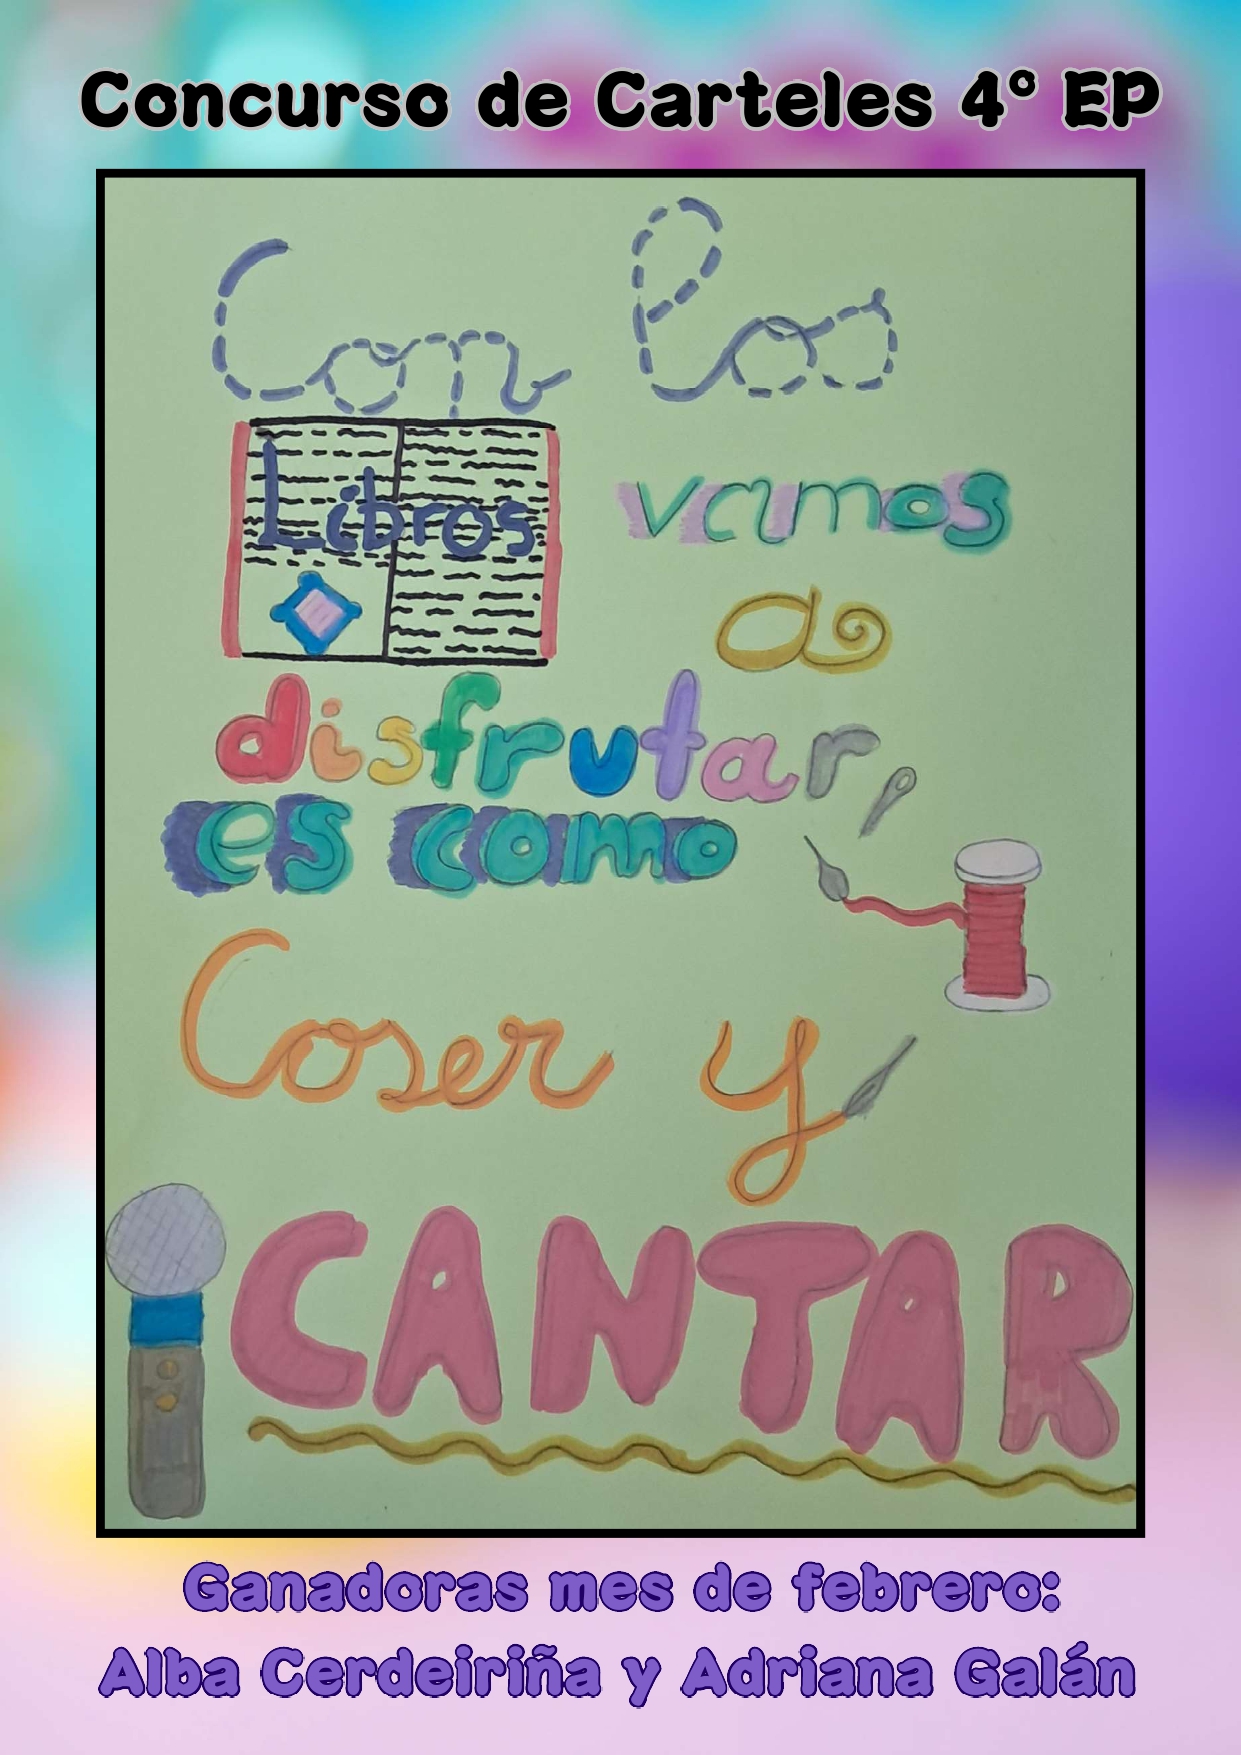 Concurso de Carteles 4º EP
Con los
Libros vamos
a
disfrutar,
es como
Coser y
CANTAR
Ganadoras mes de febrero:
Alba Cerdeiriña y Adriana Galán